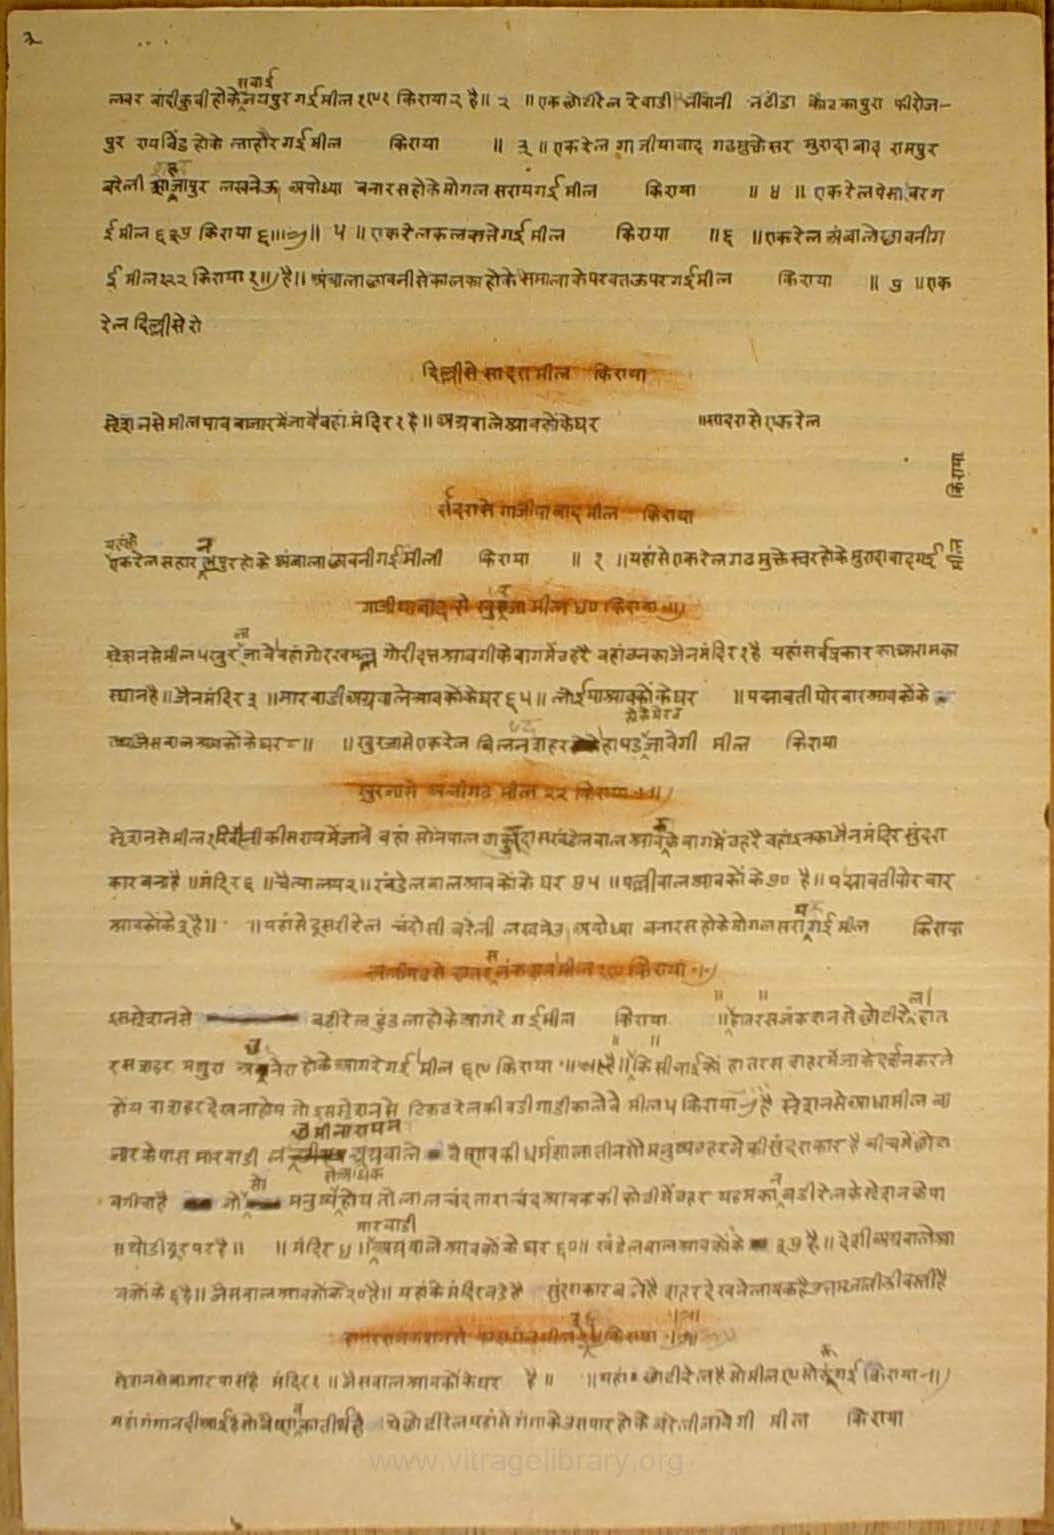 २
लवर बांदीकुवी होके सवाई जयपुर गई मील १९१ किराया २ है॥ २ ॥ एक छोटी रेल रेवाडी भीवानी भटींडा कोटकापुरा फीरोज-
पुर रायविंड होके लाहौर गई मील किराया ॥ ३ ॥ एक रेल गाजीयाबाद गढमुक्तेसर मुरादाबाद रामपुर
बरेली लखनेऊ अयोध्या बनारस होके मोगल सराय गई मील किराया ॥ ४ ॥ एक रेल पेसावर ग
ई मील ६३७ किराया ६॥।-) ॥ ५ ॥ एक रेल कलकत्ते गई मील किराया ॥ ६ ॥ एक रेल अंबाले छावनी ग
ई मील किराया १॥) है॥ अंबाला छावनी से कालका होके समाला के परवत ऊपर गई मील किराया ॥ ७ ॥ एक
रेल दिल्ली से रो
दिल्ली से सादरा मील किराया
स्टेशन से मील पाव बाजार में जावे वहां मंदिर १ है॥ अग्रवाले श्रावकों के घर ॥ सादरा से एक रेल
किराया
सादरा से गाजीयाबाद मील किराया
यहांसे एक रेल सहारनपुर होके अंबाला छावनी गई मीली किराया ॥ १ ॥ यहां से एक रेल गढमुक्तेस्वर होके मुरादाबाद गई
गाजीयाबाद से खुरजा मील ५० किराया ॥)
स्टेशन से मील ५ खुरजा जावे वहां गोरखमल्ल गोरीदत्त श्रावगी के बाग में ठहरे वहां उनका जैन मंदिर १ है यहां सर्व प्रकार का आराम का
स्थान है॥ जैन मंदिर ३ ॥ मारवाडी अग्रवाले श्रावकों के घर ६५॥ लोईया श्रावकों के घर ॥ पद्मावती पोरवार श्रावकों के
तथा जैसवाल श्रावकों के घर ८॥ ॥ खुरजा से एक रेल होके मेरठ हापड जावेगी मील किराया
खुरजा से अलीगढ मील २२ किराया ।)॥
स्टेशन से मील १ की सराय में जावे वहां सोनपाल ठाकुरदास खंडेलवाल श्रावक के बाग में ठहरे वहां उनका जैन मंदिर सुंदरा
कार बना है॥ मंदिर ६ ॥ चैत्यालय २॥ खंडेलवाल श्रावकों के घर ७५ ॥ पल्लीवाल श्रावकों के ७० है॥ पद्मावती पोरवार
श्रावकों के ३ है॥ ॥ यहां से दूसरी रेल चंदोसी बरेली लखनेउ अयोध्या बनारस होके मोगल सराय गई मील किराया
अलीगढ से हातरस जंकशन मील १९ किराया ।-)
इस स्टेशन से बडी रेल टुंडला होके आगरे गई मील किराया ॥ हातरस जंकशन से छोटी रेल हात
रस शहर मथुरा अछनेरा होके आगरे गई मील ६९ किराया है॥ किसी भाई को हातरस शहर में जाके दर्शन करने
होय वा शहर देखना होय तो इस स्टेशन से टिकट रेल की बडी गाडी का लेवे मील ५ किराया -) है स्टेशन से आधा मील बा
जार के पास मारवाडी लछमीनारायन अग्रवाले वैष्णव की धर्मसाला तीनसो मनुष्य ठहरने की सुंदराकार है बीच में छोटा
बगीचा है जो सो से अधिक मनुष्य होय तो लालचंद ताराचंद श्रावक की कोठी में ठहरे यह मकान बडी रेल के स्टेशन के पा
स थोडी दूर पर है॥ ॥ मंदिर ५ ॥ मारवाडी अग्रवाले श्रावकों के घर ६०॥ खंडेलवाल श्रावकों के ३७ है॥ देशी अग्रवाले श्रा
वकों के ६ है॥ जैसवाल श्रावकों के २० है॥ यहां के मंदिर बडे है सुंदराकार बने है शहर देखने लायक है
हातरस जंकशन से मील किराया
स्टेशन से बाजार पास है मंदिर १ ॥ जैसवाल श्रावकों के घर है॥ ॥ यहां छोटी रेल है सो मील ९ सोरूं गई किराया -॥)
यहां गंगा नदी आई है सो वैष्णव का तीर्थ है ये छोटी रेल यहां से गंगा के उस पार होके बरेली जावेगी मील किराया
www.vitragelibrary.org